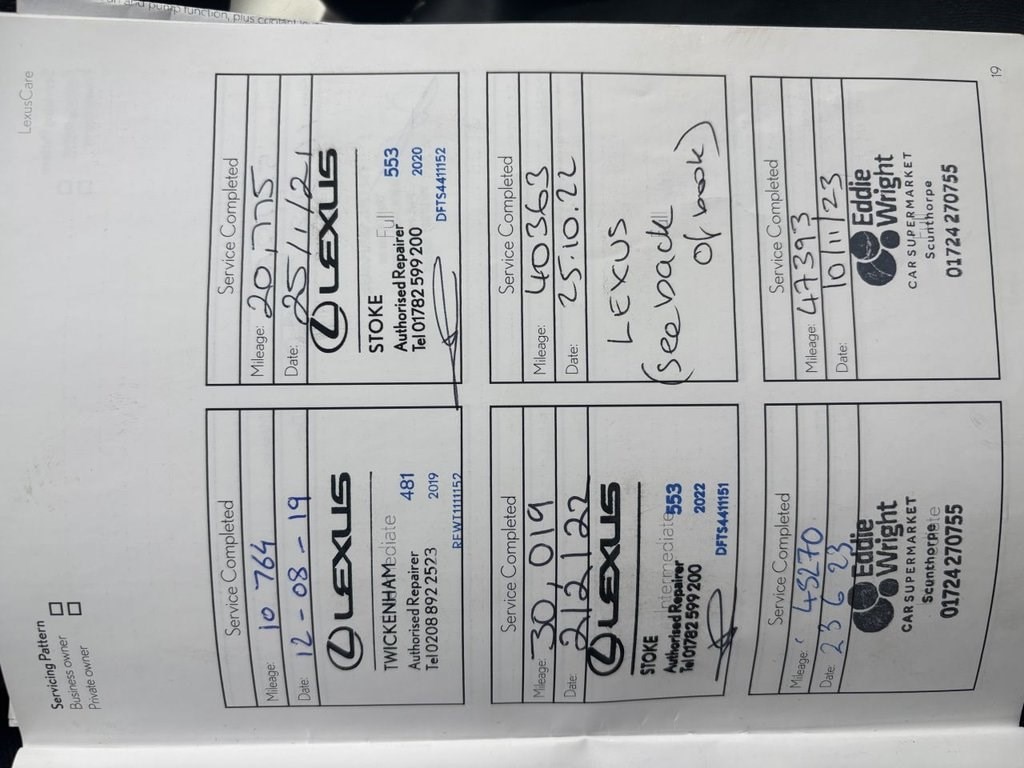 LexusCare
Servicing Pattern
Business owner
Private owner
Service Completed
Mileage: 10 764
Date: 12-08-19
LEXUS
TWICKENHAM
Authorised Repairer
Tel 0208 892 2523
481
2019
REWT1111152
Service Completed
Mileage: 20,775
Date: 25/1/21
LEXUS
STOKE
Full
Authorised Repairer
Tel 01782 599 200
553
2020
DFTS4411152
Service Completed
Mileage: 30,019
Date: 21/2/22
LEXUS
STOKE
Intermediate
Authorised Repairer
Tel 01782 599 200
553
2022
DFTS4411151
Service Completed
Mileage: 40363
Date: 25.10.22
LEXUS
(see back
of book)
Service Completed
Mileage: 45270
Date: 23 6 23
Eddie
Wright
CAR SUPERMARKET
Scunthorpe
01724 270755
Service Completed
Mileage: 47393
Date: 10/11/23
Eddie
Wright
CAR SUPERMARKET
Scunthorpe
01724 270755
19